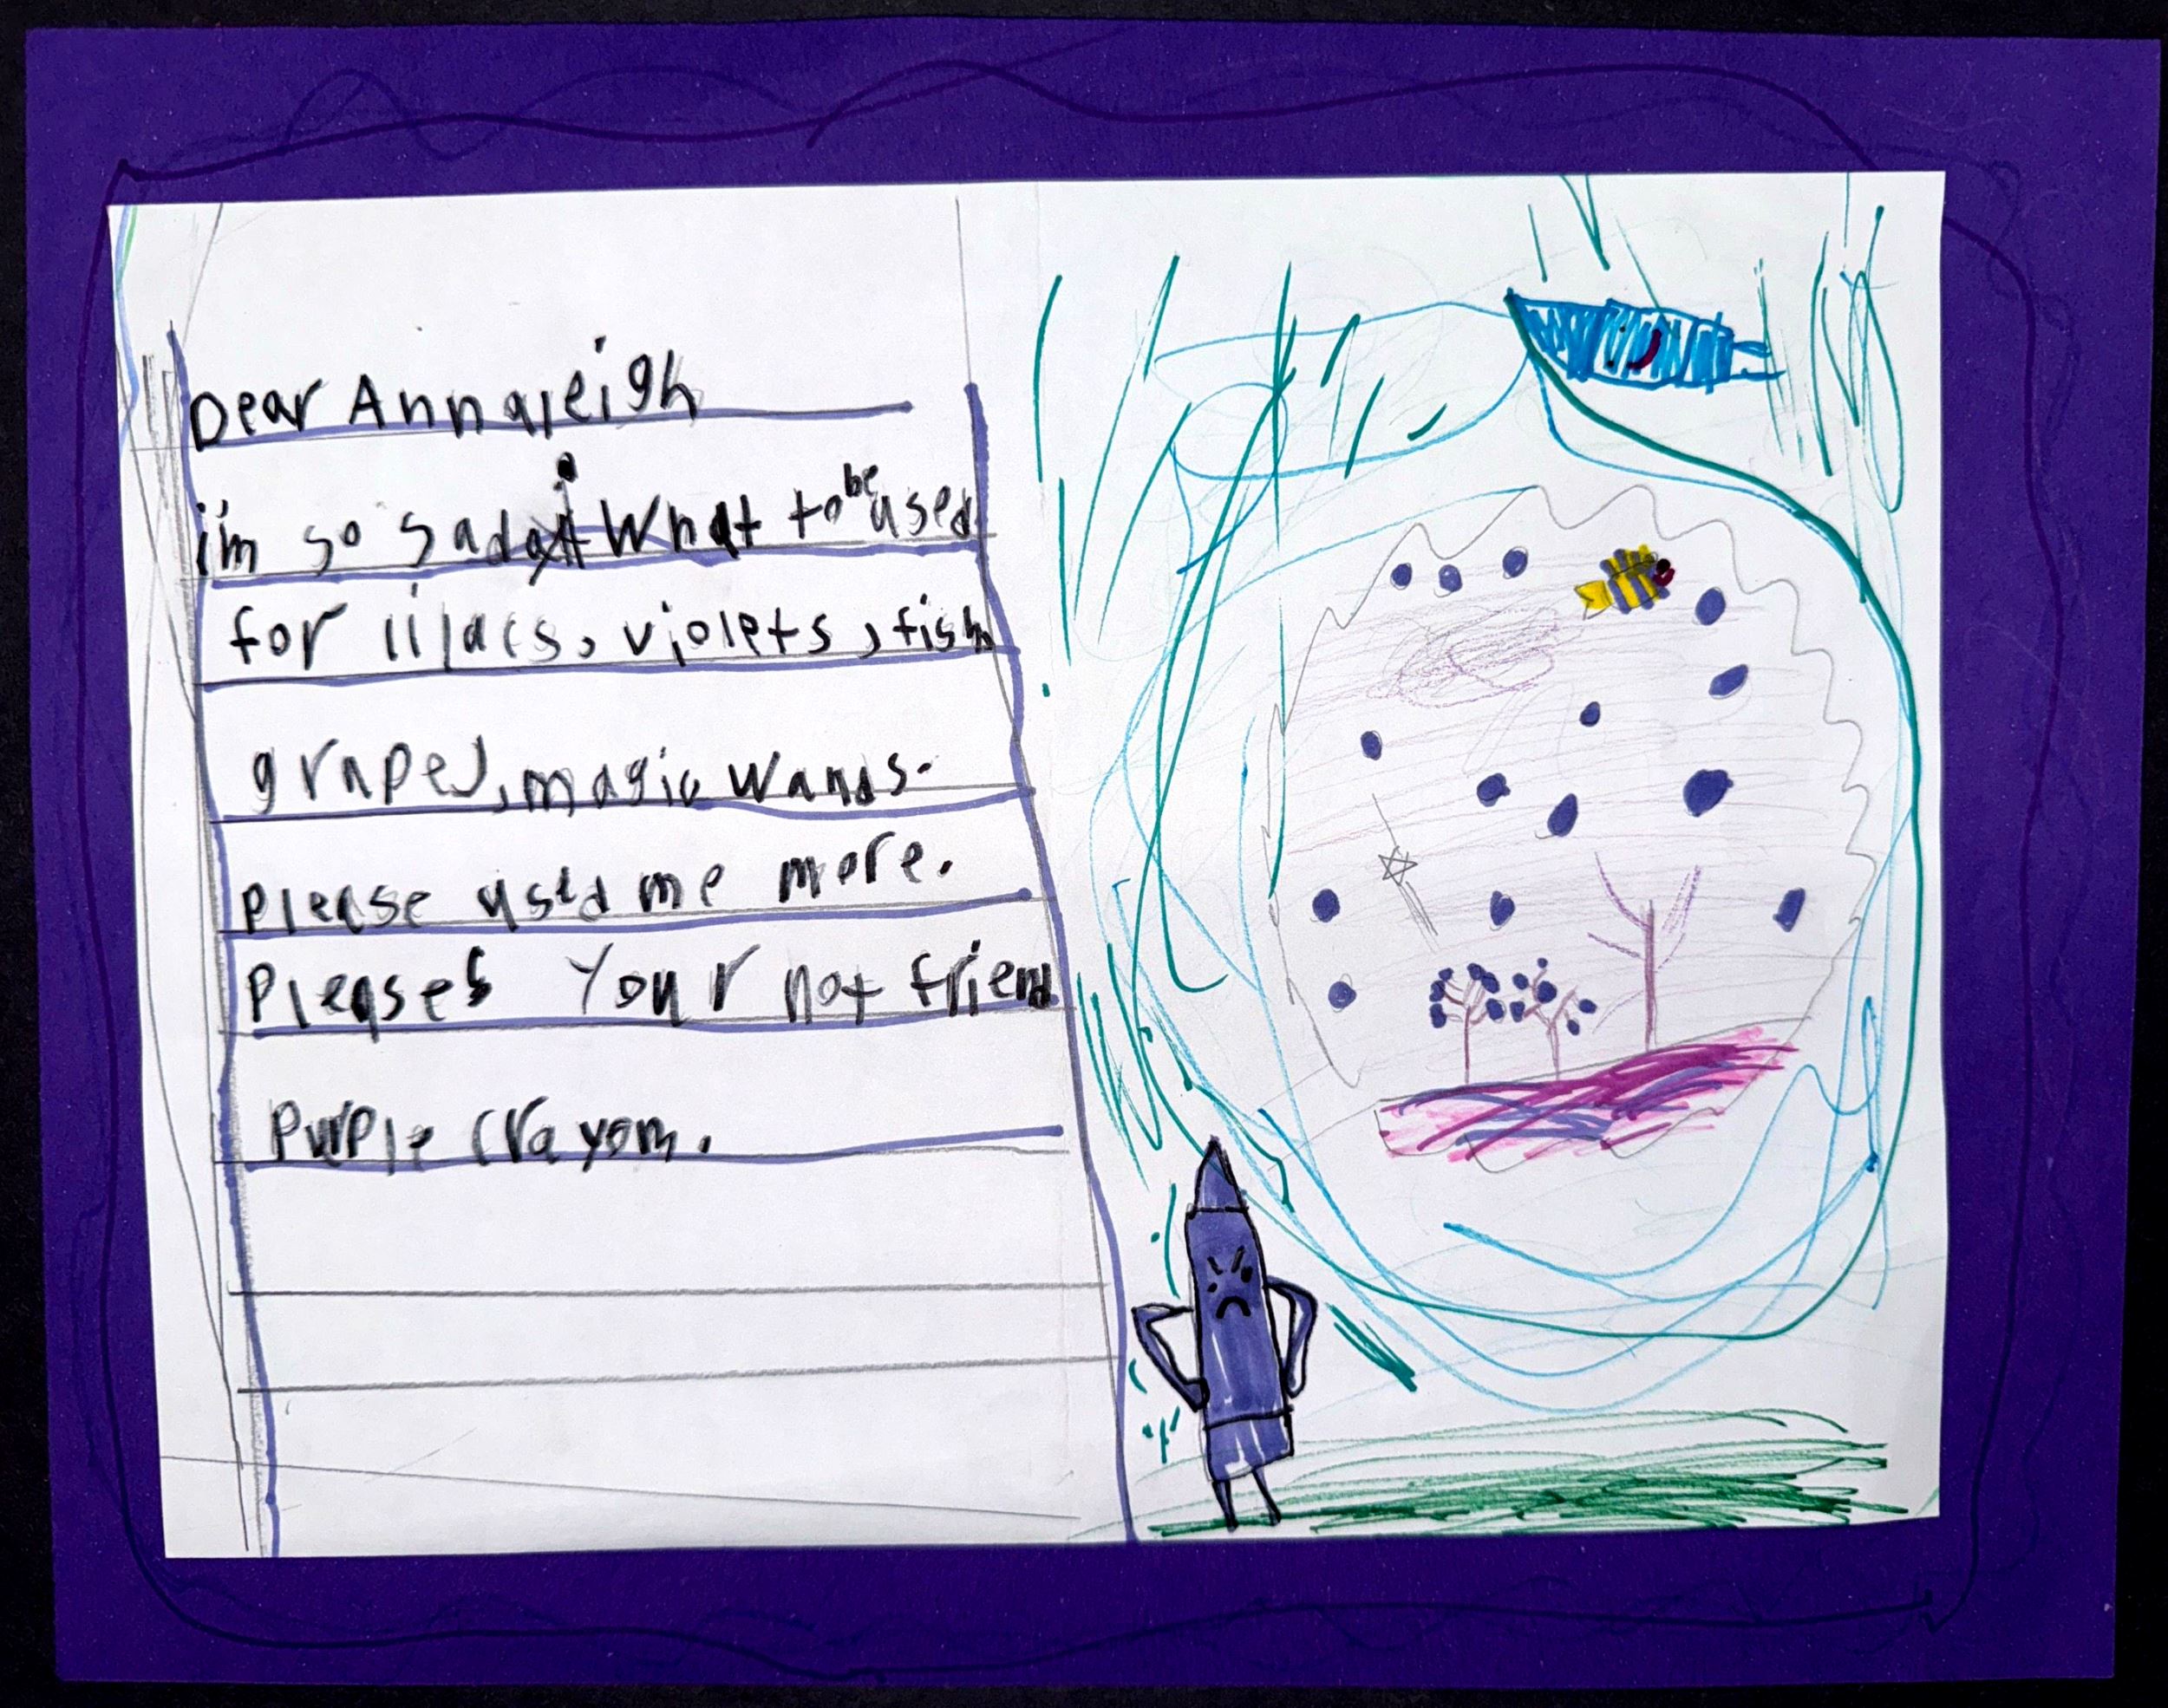 Dear Annaleigh
i'm so sad i What to be used
for lilacs, violets, fish
grapes, magic wands.
Please used me more.
Please! Your not friend
Purple Crayom.